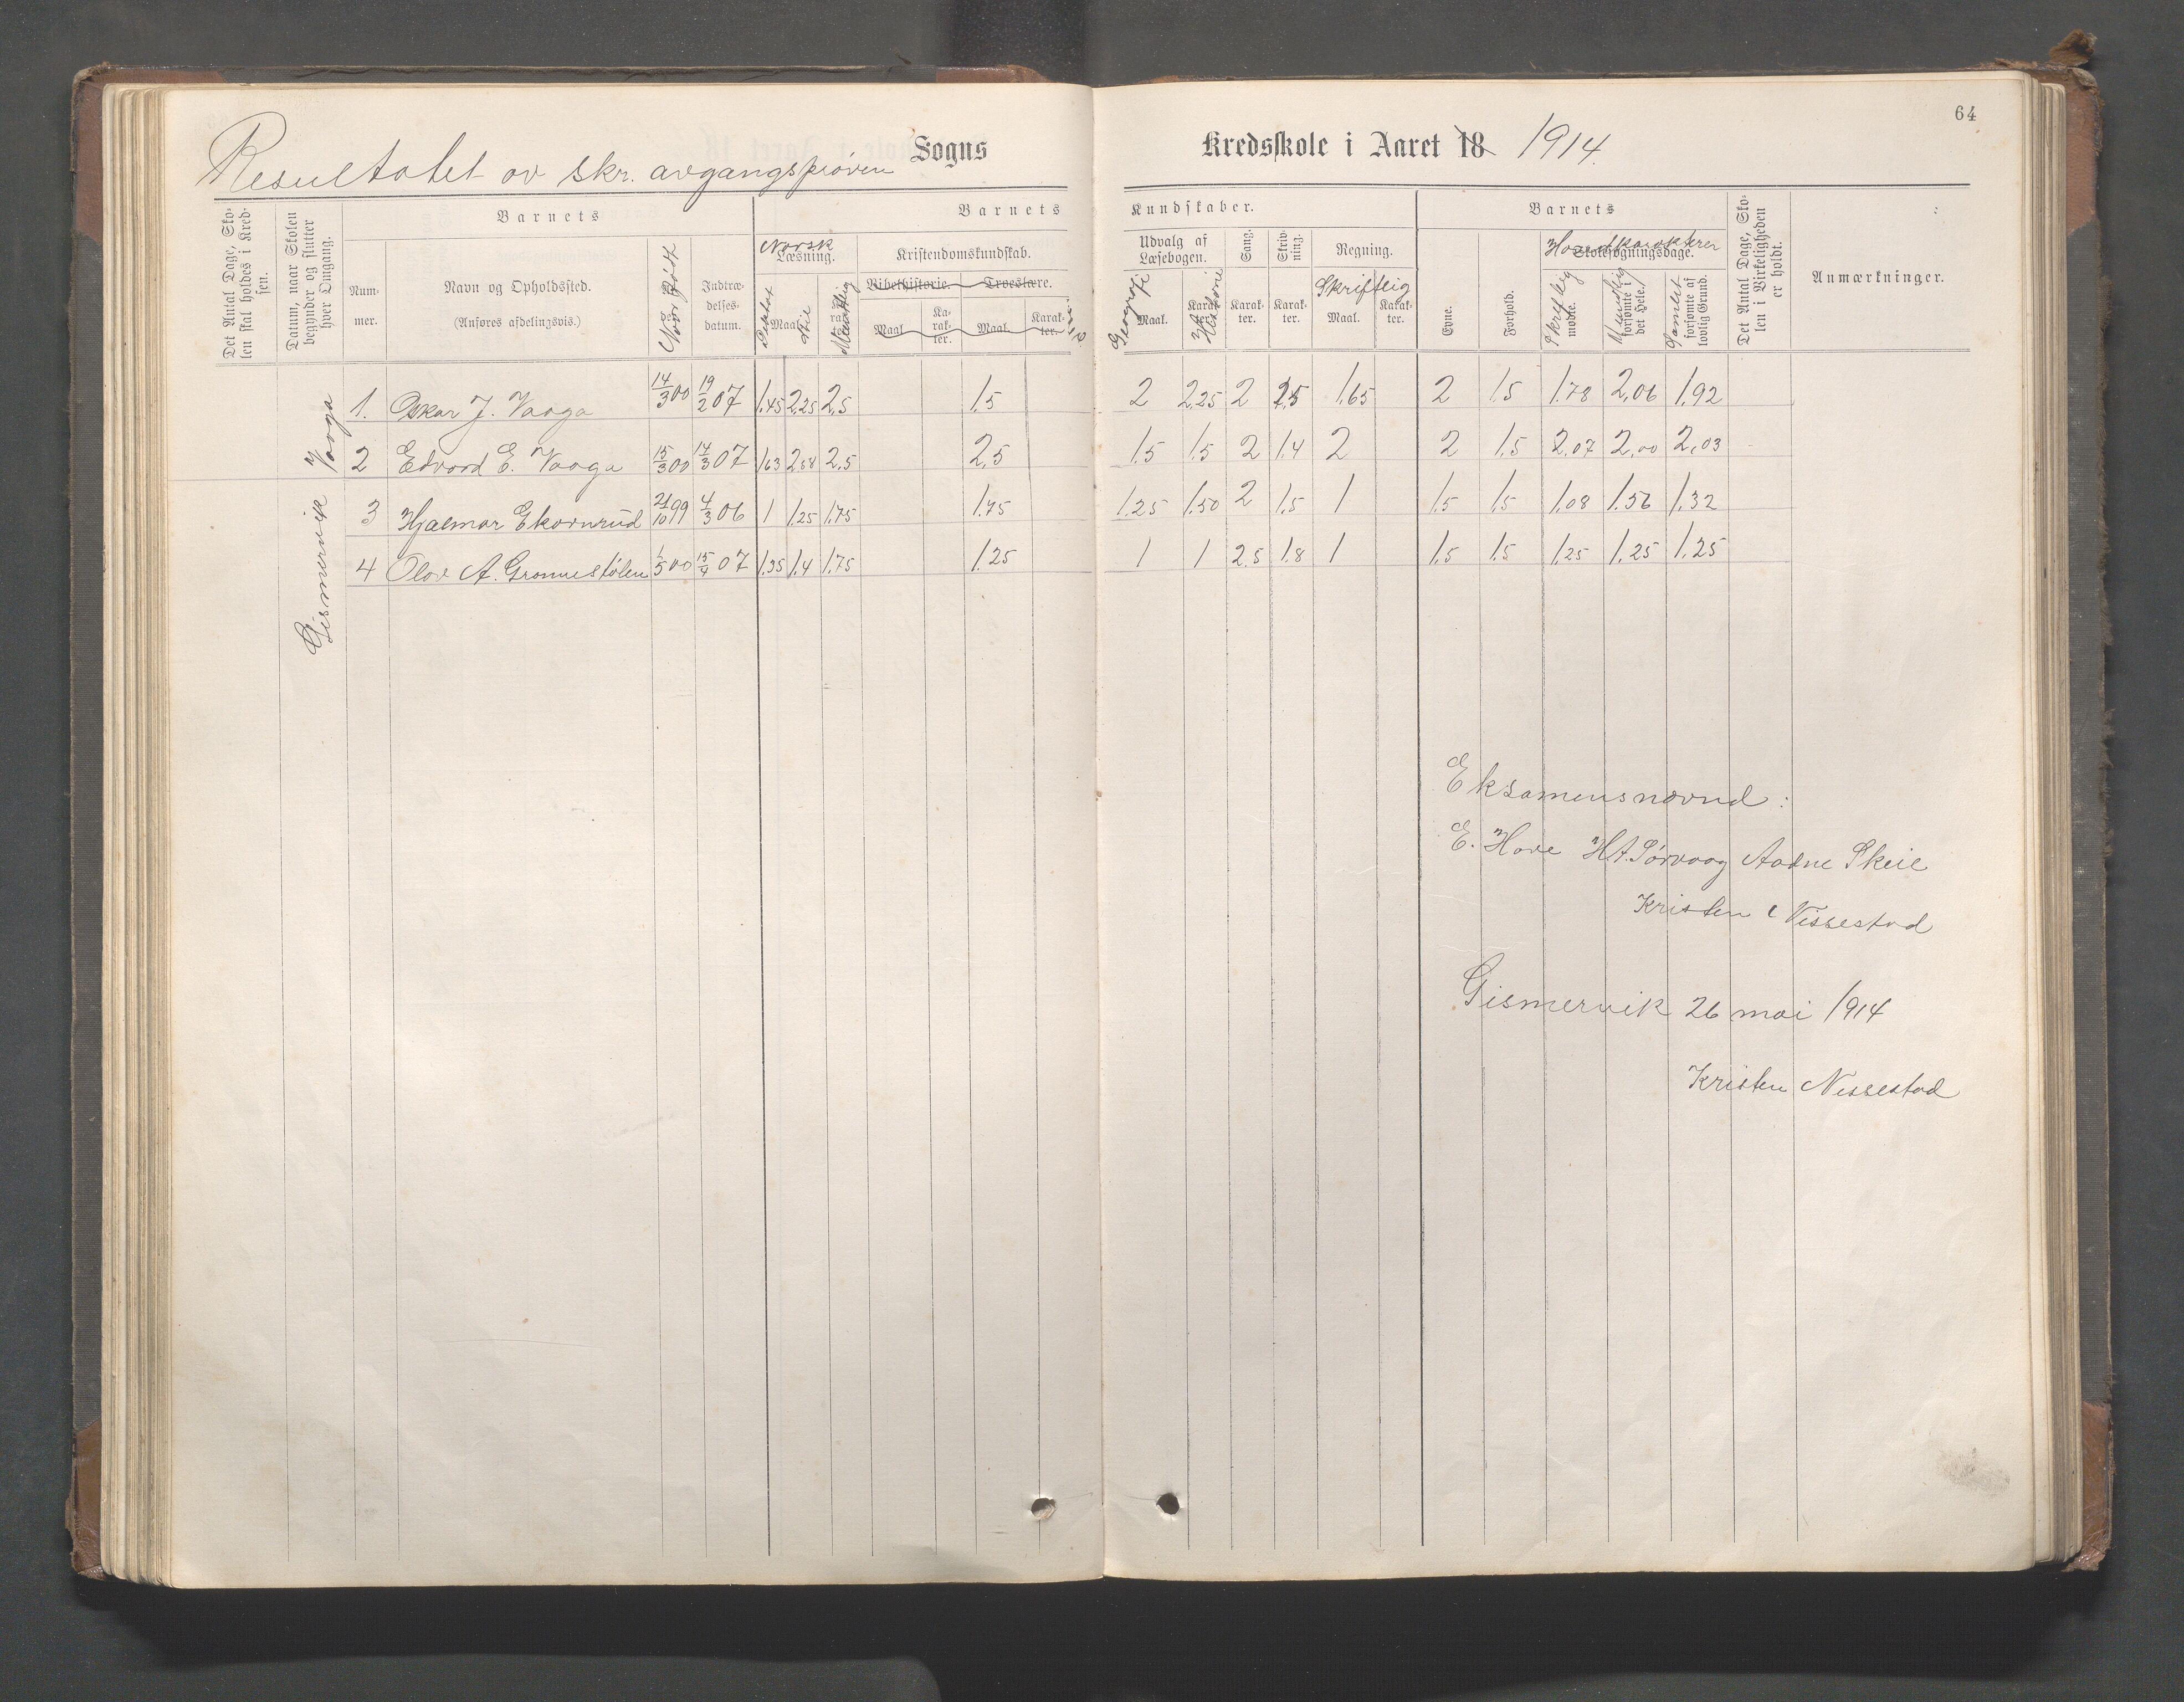 64
Resultatet av skr. avgangsprøven Sogns
Kredsskole i Aaret 18 1914
Det Antal Dage, Skolen skal holdes i Kredsen.
Datum, naar Skolen begynder og slutter hver Omgang.
Barnets
Barnets
Kundskaber.
Barnets
Det Antal Dage, Skolen i Virkeligheden er holdt.
Anmærkninger.
Nummer.
Navn og Opholdssted.
(Anføres afdelingsvis.)
Naar født
Indtrædelsesdatum.
Norsk
Læsning.
Kristendomskundskab.
Bibelhistorie. Troeslære.
Diktat Maal. Stil Mundtlig
Maal. Karakter. Maal. Karakter.
Udvalg af Læsebogen.
Geografi Maal. Historie Karakter.
Sang. Karakter.
Skrivning. Karakter.
Regning.
Skriftlig
Maal. Karakter.
Evne.
Forhold.
Hovedkarakterer
Skolesøgningsdage.
Skriftlig mødte.
Mundtlig forsømte i det Hele.
Samlet forsømte af lovlig Grund.
Vaaga
1. Oskar J. Vaaga 14/3 00 19/2 07 1,45 2,25 2,5 1,5 2 2,25 2 2,5 1,65 2 1,5 1,78 2,06 1,92
2 Edvard E. Vaaga 15/3 00 14/3 07 1,63 2,58 2,5 2,5 1,5 1,5 2 1,4 2 2 1,5 2,07 2,00 2,03
Gismervik
3 Hjalmar Ekornrud 21/10 99 4/3 06 1 1,25 1,75 1,75 1,25 1,50 2 1,5 1 1,5 1,5 1,08 1,56 1,32
4 Olav A. Grønnestølen 1/5 00 15/4 07 1,35 1,4 1,75 1,25 1 1 2,5 1,8 1 1,5 1,5 1,25 1,25 1,25
Eksamensnævnd:
E. Hove H A Sørvaag Aadne Skeie
Kristen Nissestad
Gismervik 26 mai 1914
Kristen Nissestad